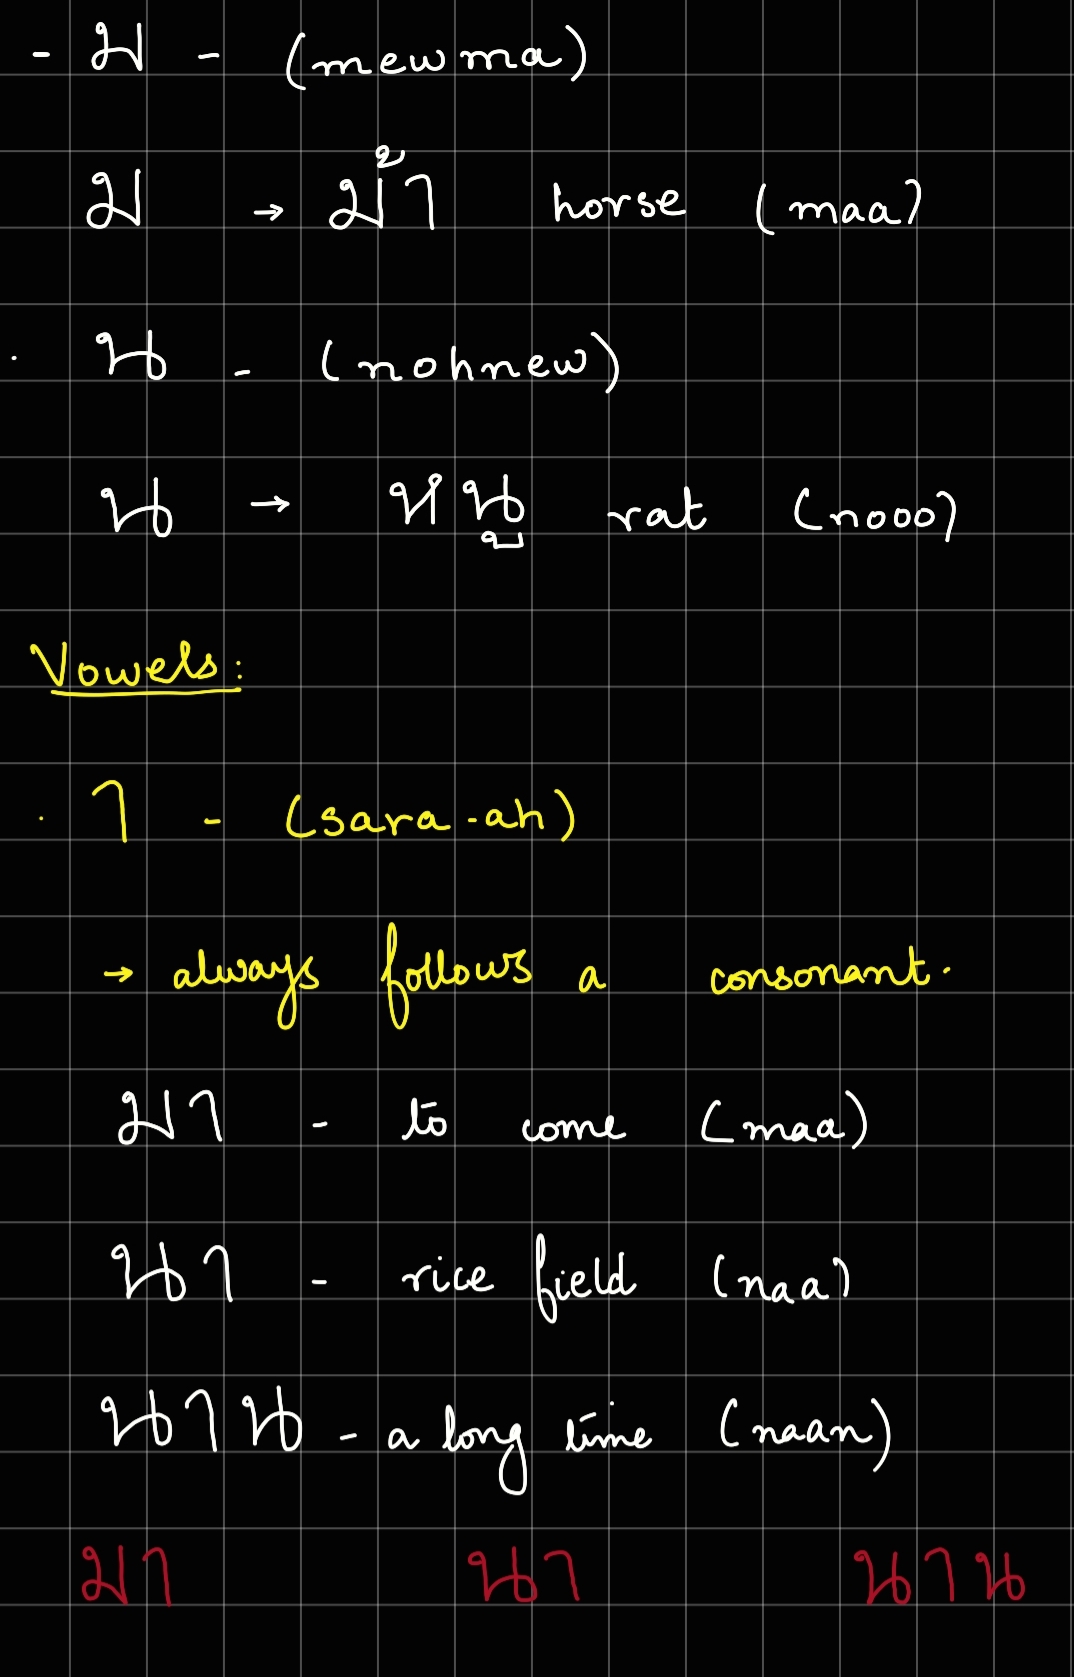 - ม - (mewma)
ม → ม้า horse (maa)
· น - (nohnew)
น → หนู rat (nooo)
Vowels:
· า - (sara-ah)
→ always follows a consonant.
มา - to come (maa)
นา - rice field (naa)
นาน - a long time (naan)
มา นา นาน